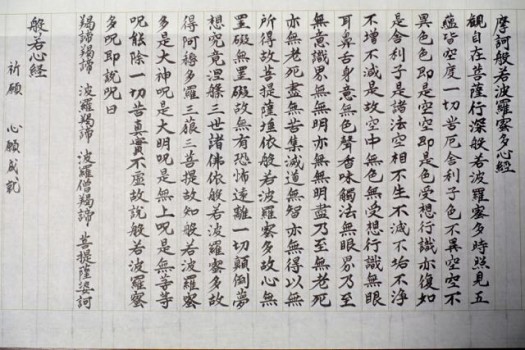 摩訶般若波羅蜜多心経
觀自在菩薩行深般若波羅蜜多時照見五
蘊皆空度一切苦厄舎利子色不異空空不
異色色即是空空即是色受想行識亦復如
是舎利子是諸法空相不生不滅不垢不浄
不増不減是故空中無色無受想行識無眼
耳鼻舌身意無色聲香味觸法無眼界乃至
無意識界無無明亦無無明盡乃至無老死
亦無老死盡無苦集滅道無智亦無得以無
所得故菩提薩埵依般若波羅蜜多故心無
罣礙無罣礙故無有恐怖遠離一切顛倒夢
想究竟涅槃三世諸佛依般若波羅蜜多故
得阿耨多羅三藐三菩提故知般若波羅蜜
多是大神呪是大明呪是無上呪是無等等
呪能除一切苦真實不虚故説般若波羅蜜
多呪即説呪曰
羯諦羯諦 波羅羯諦 波羅僧羯諦 菩提薩婆訶
般若心経
祈願 心願成就